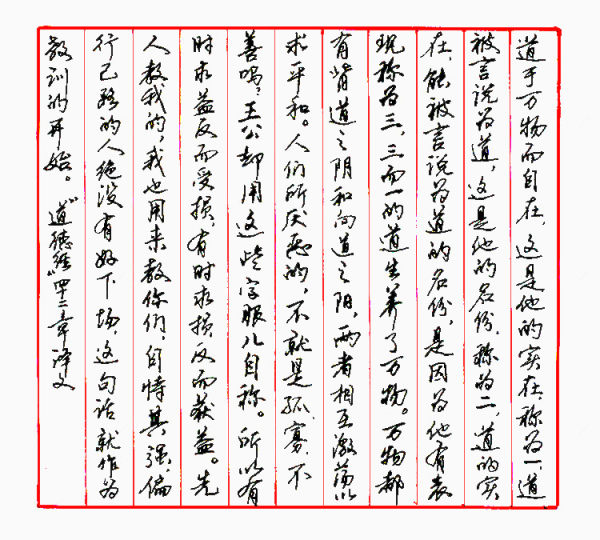 道于万物而自在,这是他的实在,称为一,道
被言说为道,这是他的名份,称为二,道的实
在,能被言说为道的名份,是因为他有表
现称为三,三而一的道生养了万物。万物都
有背道之阴和向道之阳,两者相互激荡以
求平和。人们所厌恶的,不就是孤、寡、不
善吗,王公却用这些字眼儿自称。所以有
时求益反而受损,有时求损反而获益。先
人教我的,我也用来教你们,自恃其强、偏
行己路的人绝没有好下场,这句话就作为
教训的开始。"道德经"四十二章译文